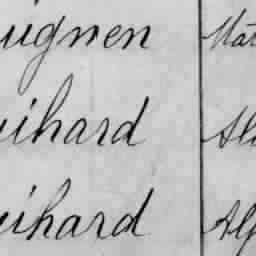 uignen Mat
uihard Al
uihard Alf